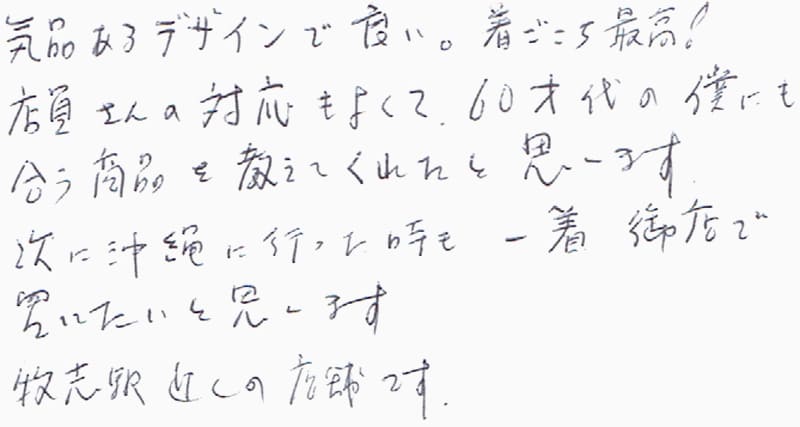 気品あるデザインで良い。着ごこち最高!
店員さんの対応もよくて、60才代の僕にも
合う商品を教えてくれたと思います.
次に沖縄に行った時も 一着 御店で
買いたいと思います
牧志駅近くの店舗です.